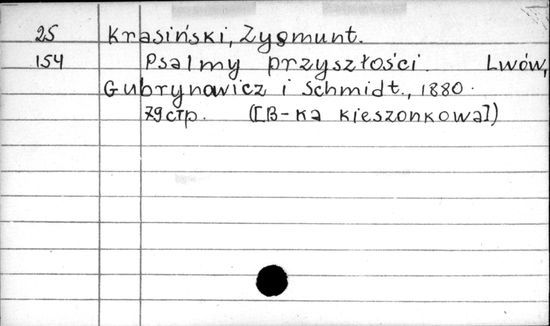 25 Krasiński, Zygmunt.
154 Psalmy przyszłości. Lwów,
Gubrynowicz i Schmidt., 1880.
79стр. ([B-ка kieszonkowa])